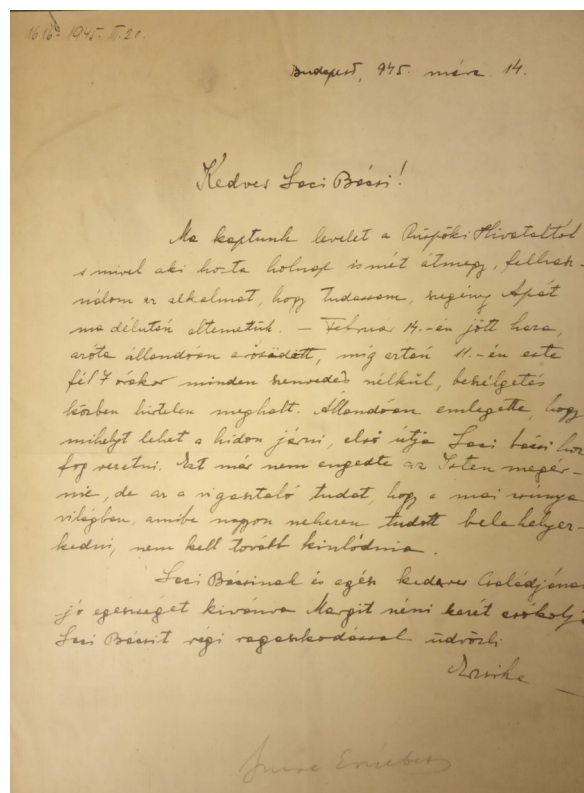 1945. II. 21.
Budapest, 945. márc. 14.
Kedves Laci Bácsi!
Ma kaptunk levelet a Püspöki Hivataltól
s mivel aki hozta holnap ismét átmegy, felhasz-
nálom az alkalmat, hogy tudassam, szegény Apát
ma délután eltemetük. – Február 14.-én jött haza,
azóta állandóan erősödött, míg aztán 11.-én este
fél 7 órakor minden szenvedés nélkül, beszélgetés
közben hirtelen meghalt. Állandóan emlegette, hogy
mihelyt lehet a hidon járni, első útja Laci bácsihoz
fog vezetni. Ezt már nem engedte az Isten megér-
nie, de az a vigasztaló tudat, hogy a mai csúnya
világban, amibe nagyon nehezen tudott bele helyez-
kedni, nem kell tovább kinlódnia.
Laci Bácsinak és egész kedves Családjának
jó egészséget kivánva Margit néni kezét csókolja
Laci Bácsit régi ragaszkodással üdvözli
Erzsike